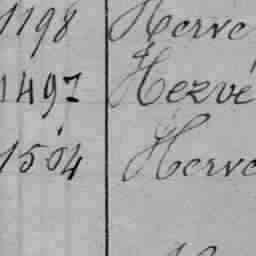 1198 Herve
1497 Hezvé
1504 Herve